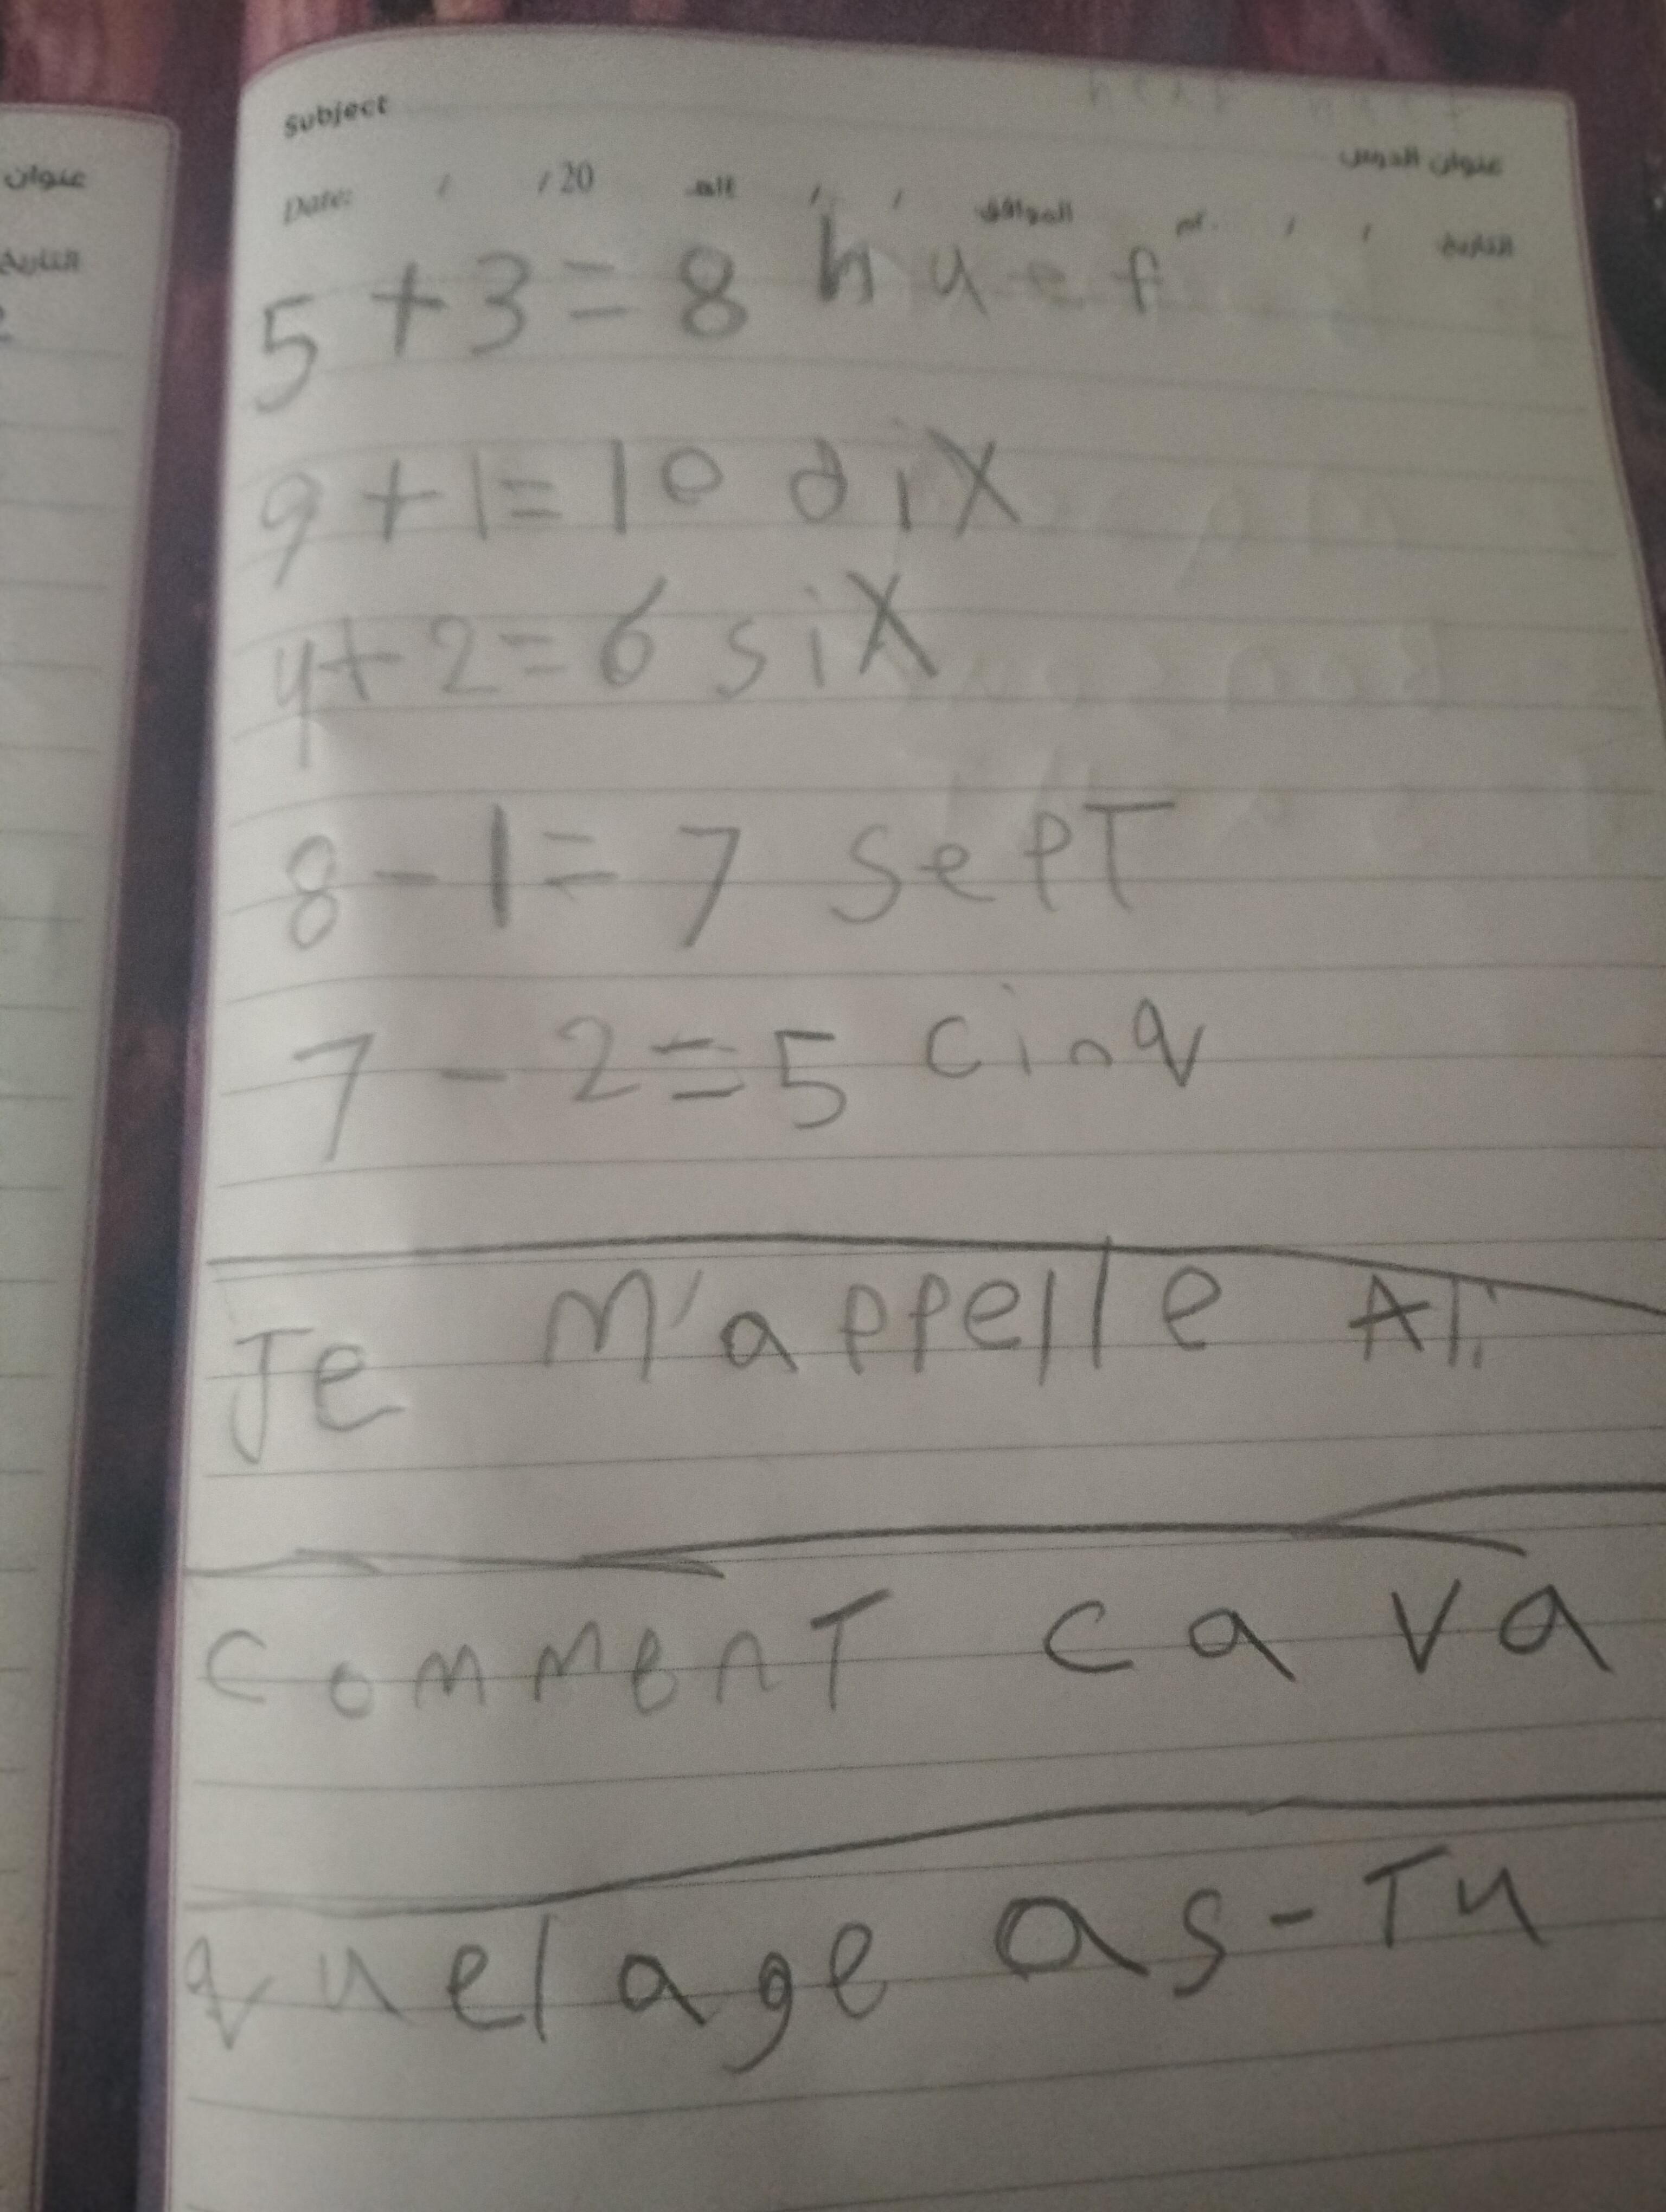 Subject
عنوان الدرس
Date: / / 20 الموافق / / م التاريخ / /
عنوان
التاريخ
5 + 3 = 8 huef
9 + 1 = 10 dix
4 + 2 = 6 six
8 - 1 = 7 sepT
7 - 2 = 5 cinq
Je m'appelle Ali
commenT ca va
quel age as-Tu